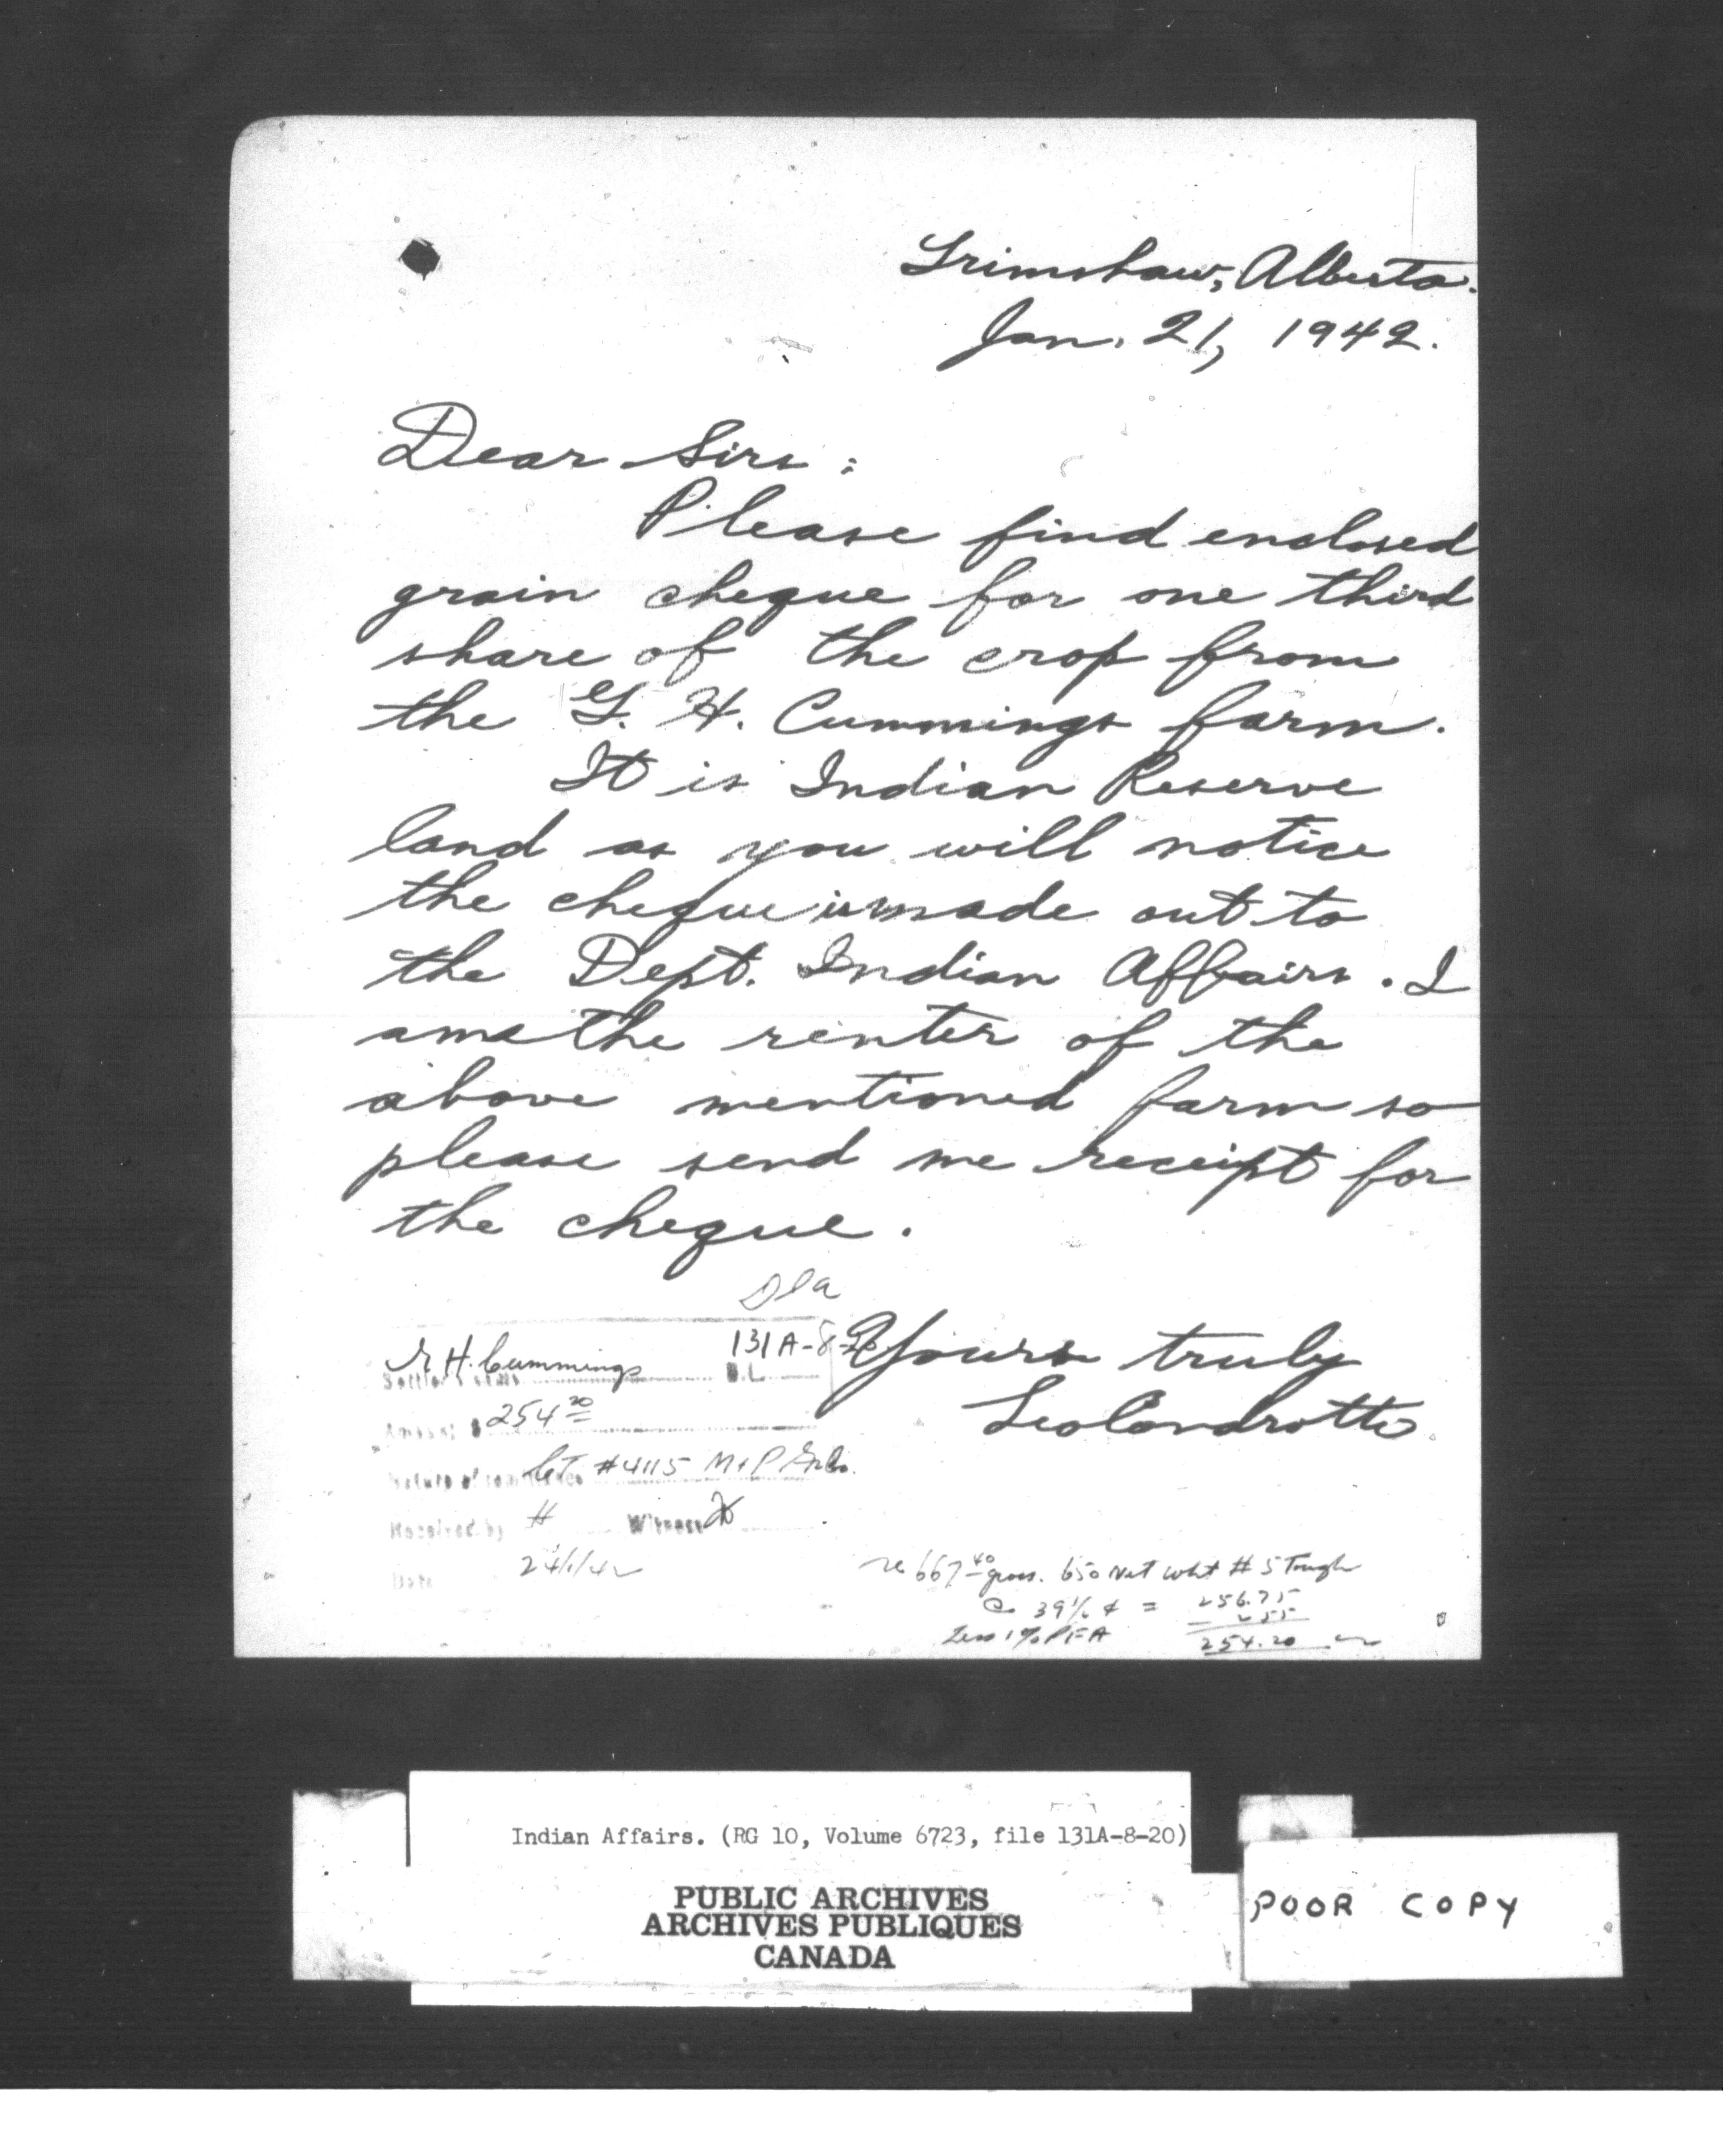 Grimshaw, Alberta.
Jan. 21, 1942.
Dear Sirs:
Please find enclosed
grain cheque for one third
share of the crop from
the G. H. Cummings farm.
It is Indian Reserve
land as you will notice
the cheque is made out to
the Dept. Indian Affairs. I
am the renter of the
above mentioned farm so
please send me receipt for
the cheque.
DIA
H. Cummings 131A-8-20
Settler's name B.L.
Amount $ 254 20
Nature of remittance #4115 M & P
Received by H Witness
Date 24/1/42
Yours truly
Leo Condrotte
re 667 40 gross. 650 Net wht #5 Tough
@ 39½ ¢ = 256.75
Less 1% PFA 2 55
254.20
Indian Affairs. (RG 10, Volume 6723, file 131A-8-20)
PUBLIC ARCHIVES
ARCHIVES PUBLIQUES
CANADA
POOR COPY